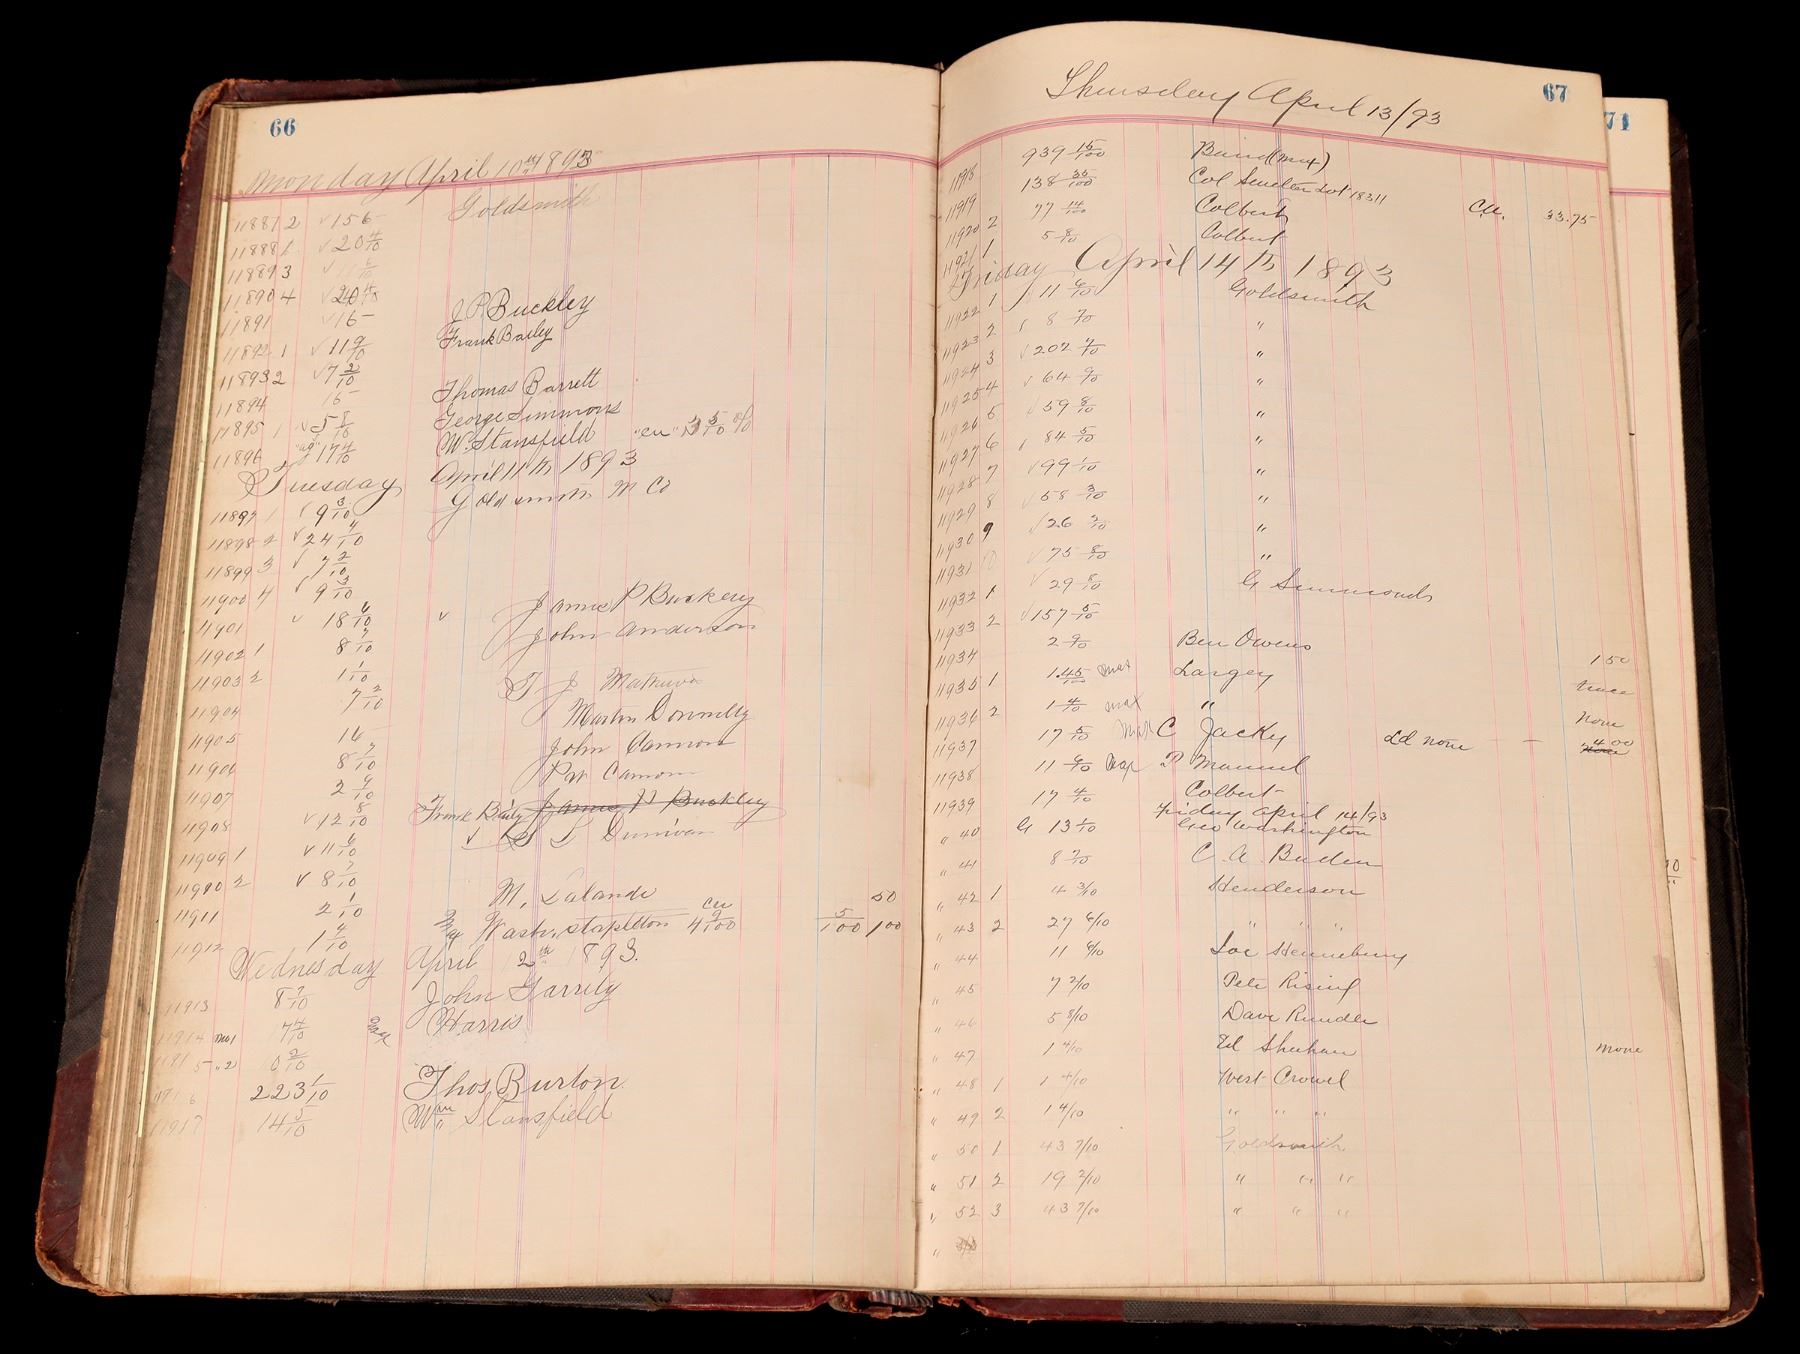 66
Monday April 10th 1893
Goldsmith
11887 2 √156-
11888 1 √20 4/10
11889 3 √
11890 4 √
11891 √16- J.P. Buckley
11892 1 √11 9/10 Frank Bailey
11893 2 √7 2/10
11894 16- Thomas Barrett
11895 1 √5 8/10 George Simmons
11896 "ag" 17 4/10 W. Stansfield "cu" 5/10 %
Tuesday April 11th 1893
11897 1 √9 3/10 Goldsmith M Co
11898 2 √24 4/10
11899 3 √7 2/10
11900 4 √9 3/10
11901 √ 18 6/10 √ James P Buckley
11902 1 8 7/10 John Anderson
11903 2 1 1/10
11904 7 2/10 T J
11905 16- Martin Donnelly
11906 8 7/10 John Cannon
11907 2 9/10 Cannon
11908 √12 8/10 Frank Baily James P Buckley
11909 1 √11 6/10 √ S L
11910 2 √8 7/10
11911 2 1/10 M. Lalande 50
11912 1 4/10 Wash. Stapleton cu 4 9/100 5/100 100
Wednesday April 12th 1893.
11913 8 7/10 John Garrity
11914 No1 7 4/10 Harris
11915 "2 0 2/10
11916 223 1/10 Thos. Burton
11917 14 5/10 Wm Stansfield
67
Thursday April 13/93
11918 939 15/100 Baird (mex)
11919 138 35/100 Col Smelter Lot 18311
11920 2 77 14/100 Colbert Cu. 33.75
11921 1 5 8/10 Colbert
Friday April 14th 1893
11922 1 11 6/10 Goldsmith
11923 2 8 7/10 "
11924 3 √202 7/10 "
11925 4 √64 9/10 "
11926 5 √59 8/10 "
11927 6 84 5/10 "
11928 7 √99 1/10 "
11929 8 √58 3/10 "
11930 9 √26 2/10 "
11931 10 √75 8/10 "
11932 1 √29 8/10 G Simmonds
11933 2 √157 5/10
11934 2 9/10 Ben Owens
11935 1 1.45/100 mat Largey 150
11936 2 1 4/10 mat " trace
11937 17 5/10 mat C Jacky Ld none - none
11938 11 6/10 P Manuel 400
11939 17 4/10 Colbert
Friday April 14/93
" 40 G 13 1/10 Geo Washington
" 41 8 7/10 C. A. Buden
" 42 1 4 3/10 Henderson
" 43 2 27 6/10 " " "
" 44 11 6/10 Joe Henneberry
" 45 7 2/10 Pete Rising
" 46 5 8/10 Dave Rundle
" 47 1 4/10 Ed Shuhan none
" 48 1 1 4/10 West Crowel
" 49 2 1 4/10 " " "
" 50 1 43 7/10 Goldsmith
" 51 2 19 2/10 " " "
" 52 3 43 7/10 " " "
"
71